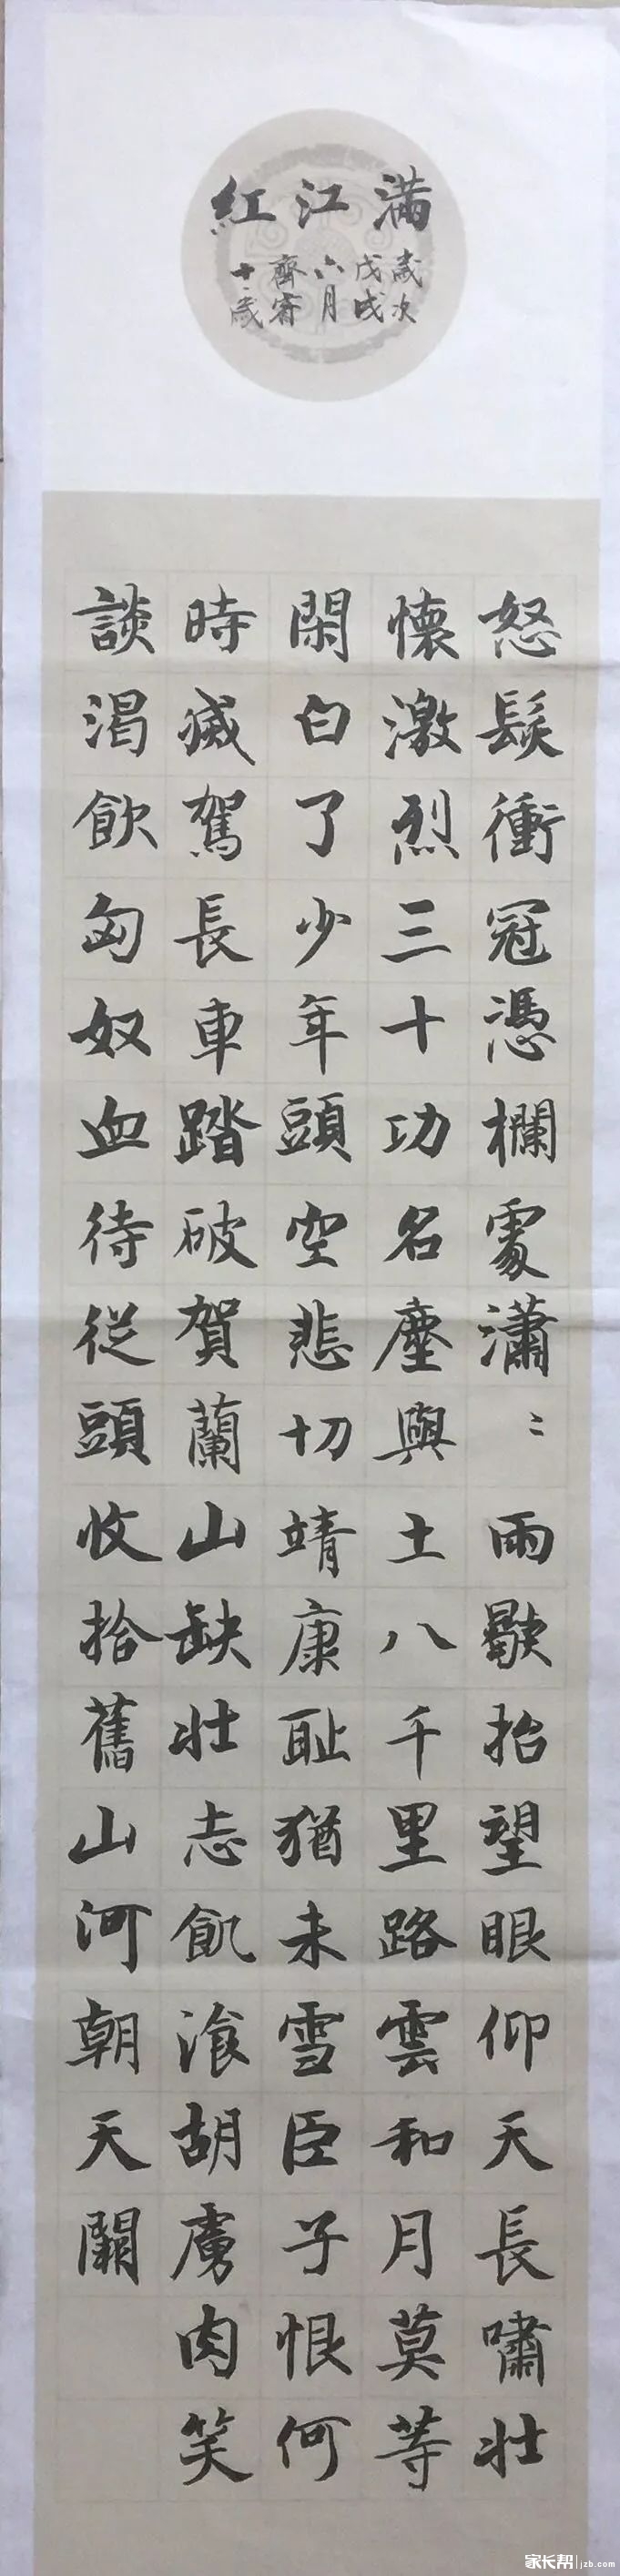 滿江紅
歲次
戊戌
六月
齊寄
十一歲
怒髮衝冠憑欄處瀟〻雨歇抬望眼仰天長嘯壯
懷激烈三十功名塵與土八千里路雲和月莫等
閑白了少年頭空悲切靖康耻猶未雪臣子恨何
時滅駕長車踏破賀蘭山缺壯志飢飡胡虜肉笑
談渴飲匈奴血待從頭收拾舊山河朝天闕
家长帮 jzb.com